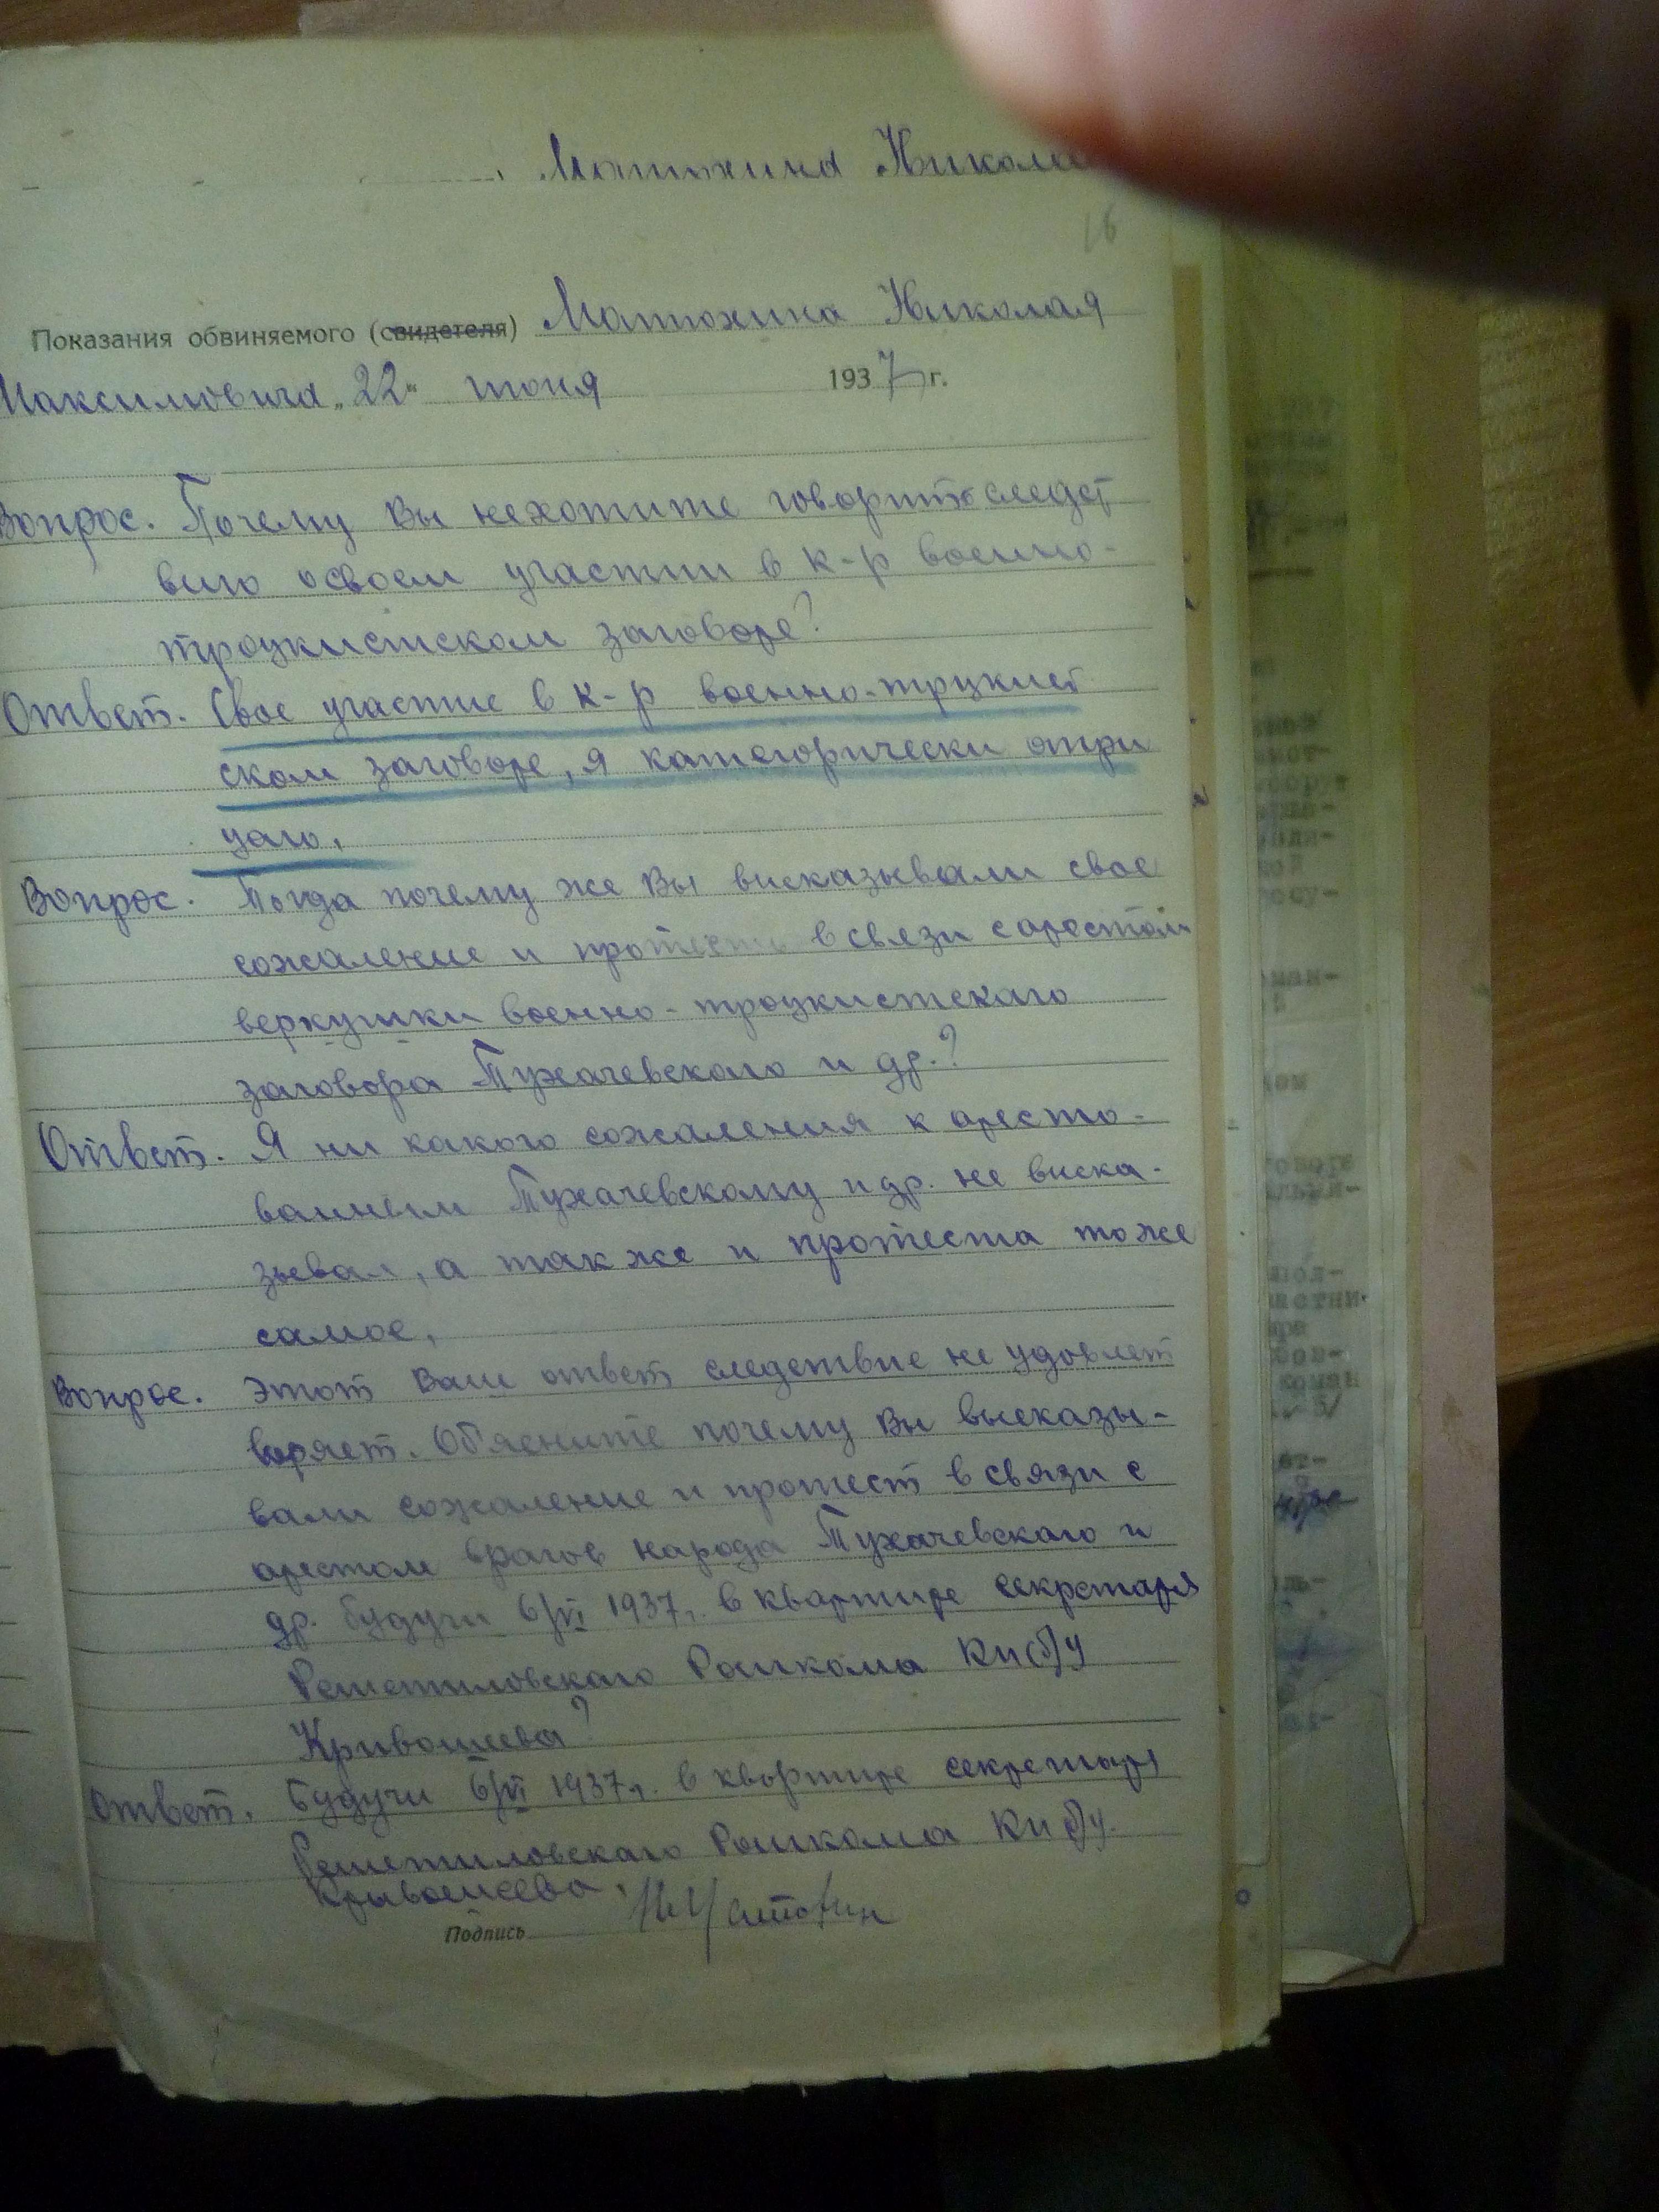 Матюхина Никола
16
Показания обвиняемого (свидетеля) Матюхина Николая
Максимовича „22" июня 1937 г.
Вопрос. Почему Вы нехотите говорить следст
вию освоем участии в к-р военно-
троцкистском заговоре?
Ответ. Свое участие в к-р военно-троцкист
ском заговоре, я категорически отри
цаю.
Вопрос. Тогда почему же Вы висказывали свое
сожаление и протест в связи с арестом
верхушки военно-троцкистскаго
заговора Тухачевского и др.?
Ответ. Я ни какого сожаления к аресто-
ванным Тухачевскому и др. не виска-
зывал, а так же и протеста то же
самое.
Вопрос. Этот Ваш ответ следствие не удовлет
воряет. Обясните почему Вы высказы-
вали сожаление и протест в связи с
арестом врагов народа Тухачевскаго и
др. будучи 6/VI 1937г. в квартире секретаря
Решетиловскаго Райкома КП(б)У
Кривошеева?
Ответ. Будучи 6/VI 1937г. в квартире секретаря
Решетиловскаго Райкома КП(б)У.
Кривошеева,
Подпись